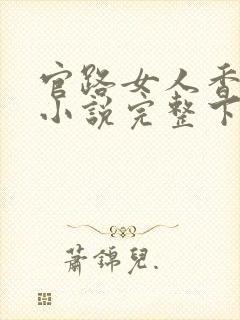 官路女人香
小説完整下
蕭錦兒.